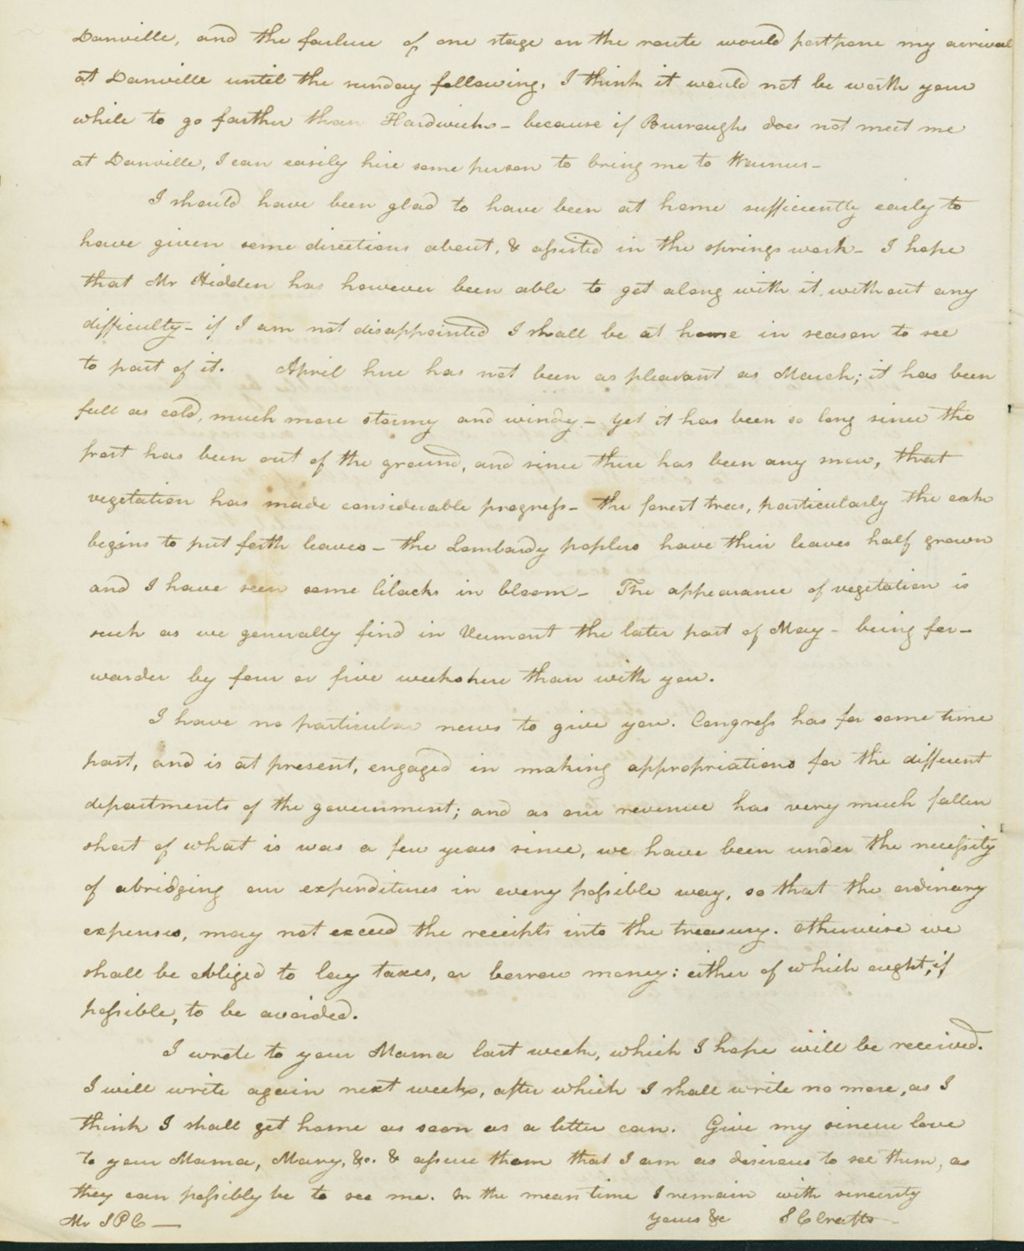 Danville, and the failure of one stage on the route would postpone my arrival
at Danville until the sunday following, I think it would not be worth your
while to go farther than Hardwick - because if Burroughs does not meet me
at Danville, I can easily hire some person to bring me to
I should have been glad to have been at home sufficiently early to
have given some directions about, & assisted in the springs work - I hope
that Mr Hidden has however been able to get along with it without any
difficulty - if I am not disappointed I shall be at home in season to see
to part of it. April here has not been as pleasant as March; it has been
full as cold, much more stormy and windy - yet it has been so long since the
frost has been out of the ground, and since there has been any snow, that
vegetation has made considerable progress - the forest trees, particularly the oak
begins to put forth leaves - the Lombardy poplars have their leaves half grown
and I have seen some lilacks in bloom - The appearance of vegetation is
such as we generally find in Vermont the later part of May - being for-
warder by four or five weeks here than with you.
I have no particular news to give you. Congress has for some time
past, and is at present, engaged in making appropriations for the different
departments of the government; and as our revenue has very much fallen
short of what is was a few years since, we have been under the necessity
of abridging our expenditures in every possible way, so that the ordinary
expenses, may not exceed the receipts into the treasury. otherwise we
shall be obliged to lay taxes, or borrow money: either of which ought, if
possible, to be avoided.
I wrote to your Mama last week, which I hope will be received.
I will write again next week, after which I shall write no more, as I
think I shall get home as soon as a letter can. Give my sincere love
to your Mama, Mary, &c. & assure them that I am as desirous to see them, as
they can possibly be to see me. In the mean time I remain with sincerity
Mr S P C — yours &c S C Crafts -